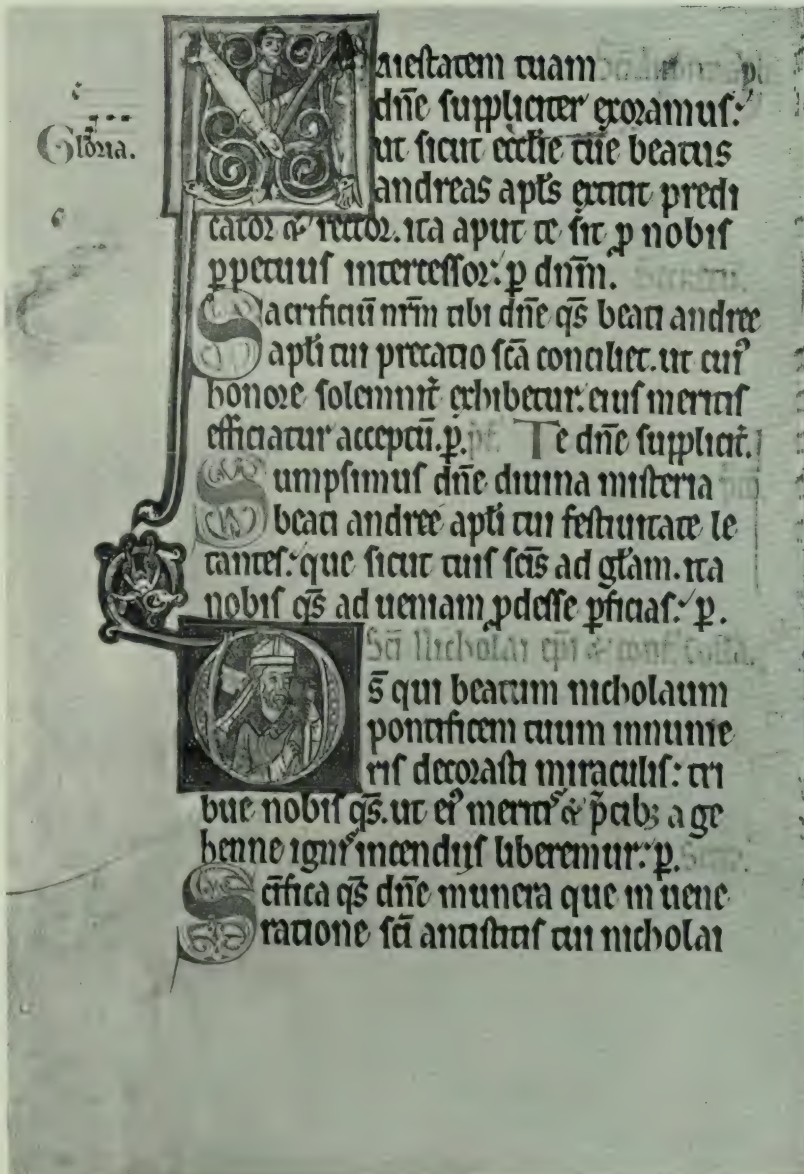 Maiestatem tuam
dn̄e suppliciter exoramus:
Gloria.
ut sicut eccl̄ie tūe beatus
andreas apl̄s extitit predi
cator & rector. ita aput te sit ꝓ nobis
ꝑpetuus intercessor: ꝑ dn̄m.
Sacrificiū nr̄m tibi dn̄e qs̄ beati andree
apl̄i tui precatio sc̄a conciliet. ut cuiꝰ
honore solemnit̄ exhibetur. eius meritis
efficiatur acceptū. ꝑ. Te dn̄e supplicit̄.
Sumpsimus dn̄e diuina misteria
beati andree apl̄i tui festiuitate le
tantes: que sicut tuis sc̄is ad gl̄am. ita
nobis qs̄ ad ueniam ꝓdesse ꝑficias: ꝑ.
Sc̄i Nicholai ep̄i & conf.
Ds̄ qui beatum nicholaum
pontificem tuum innume
ris decorasti miraculis: tri
bue nobis qs̄. ut eiꝰ meritꝭ & p̄cibꝫ a ge
henne ignis incendijs liberemur: ꝑ.
Sc̄ifica qs̄ dn̄e munera que in uene
ratione sc̄i antistitis tui nicholai